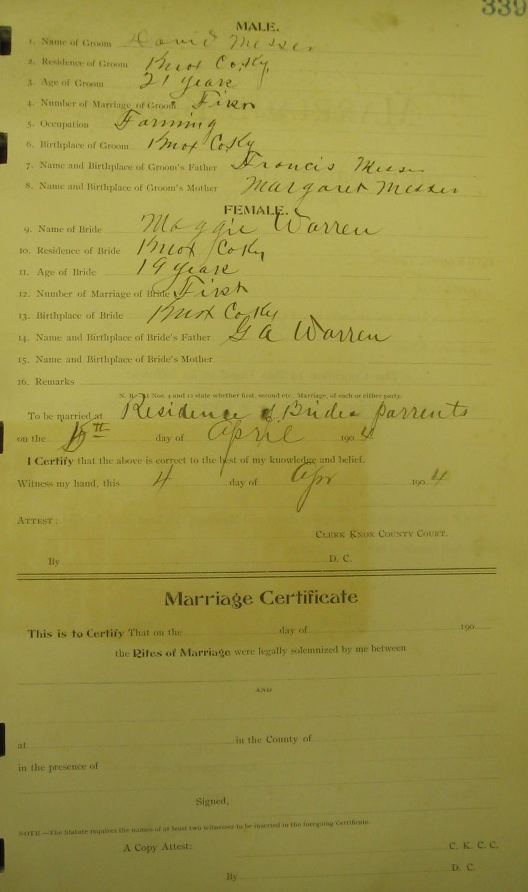 339
MALE.
1. Name of Groom David Messer
2. Residence of Groom Knox Co. Ky
3. Age of Groom 21 years
4. Number of Marriage of Groom First
5. Occupation Farming
6. Birthplace of Groom Knox Co Ky
7. Name and Birthplace of Groom's Father Francis Messer
8. Name and Birthplace of Groom's Mother Margaret Messer
FEMALE.
9. Name of Bride Maggie Warren
10. Residence of Bride Knox Co Ky
11. Age of Bride 19 years
12. Number of Marriage of Bride First
13. Birthplace of Bride Knox Co. Ky
14. Name and Birthplace of Bride's Father G A Warren
15. Name and Birthplace of Bride's Mother
16. Remarks
N. B.—At Nos. 4 and 12 state whether first, second etc., Marriage, of each or either party.
To be married at Residence of Brides parrents
on the day of April 1904
I Certify that the above is correct to the best of my knowledge and belief.
Witness my hand, this 4 day of Apr 1904
ATTEST:
CLERK KNOX COUNTY COURT.
By D. C.
Marriage Certificate
This is to Certify That on the day of 190
the Rites of Marriage were legally solemnized by me between
AND
at in the County of
in the presence of
Signed,
NOTE.—The Statute requires the names of at least two witnesses to be inserted in the foregoing Certificate.
A Copy Attest: C. K. C. C.
By D. C.